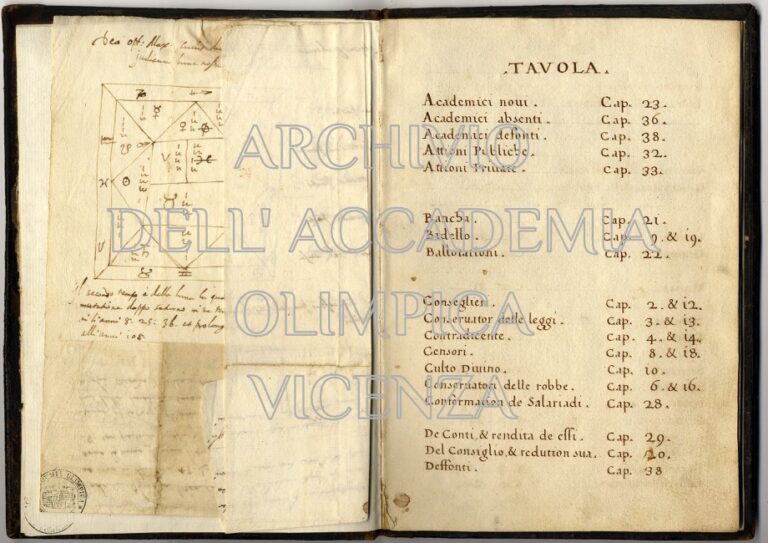 Deo opt: Max.
secondo tempo è della luna la qua
doppo
li anni 8. 25. 36. et
all'anni 108.
.TAVOLA.
Academici noui. Cap. 23.
Academici absenti. Cap. 36.
Academici defonti. Cap. 38.
Attioni Publiche. Cap. 32.
Attioni Priuate. Cap. 33.
Bancha. Cap. 21.
Bidello. Cap. 9. & 19.
Ballotationi. Cap. 22.
Conseglieri. Cap. 2. & 12.
Conseruator delle leggi. Cap. 3. & 13.
Contradicente. Cap. 4. & 14.
Censori. Cap. 8. & 18.
Culto Diuino. Cap. 10.
Conseruatori delle robbe. Cap. 6. & 16.
Confermation de Salariadi. Cap. 28.
De Conti, & rendita de essi. Cap. 29.
Del Consiglio, & redution sua. Cap. 20.
Deffonti. Cap. 38
ARCHIVIO
DELL' ACCADEMIA
OLIMPICA
VICENZA